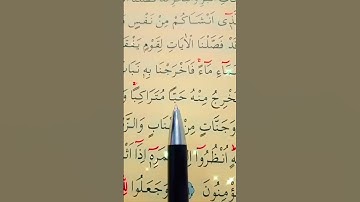 ذِیۤ اَنْشَاَكُمْ مِنْ نَفْسٍ
قَدْ فَصَّلْنَا الْاٰيَاتِ لِقَوْمٍ يَفْقَ
مَاۤءِ مَاۤءً ۚ فَاَخْرَجْنَا بِهٖ نَبَاتَ
نُخْرِجُ مِنْهُ حَبًّا مُتَرَاكِبًا ۚ وَ
وَجَنَّاتٍ مِنْ اَعْنَابٍ وَالزَّ
اُنْظُرُوۤا اِلٰى ثَمَرِهٖۤ اِذَاۤ اَثْ
يُؤْمِنُونَ وَجَعَلُوا لِلّٰهِ